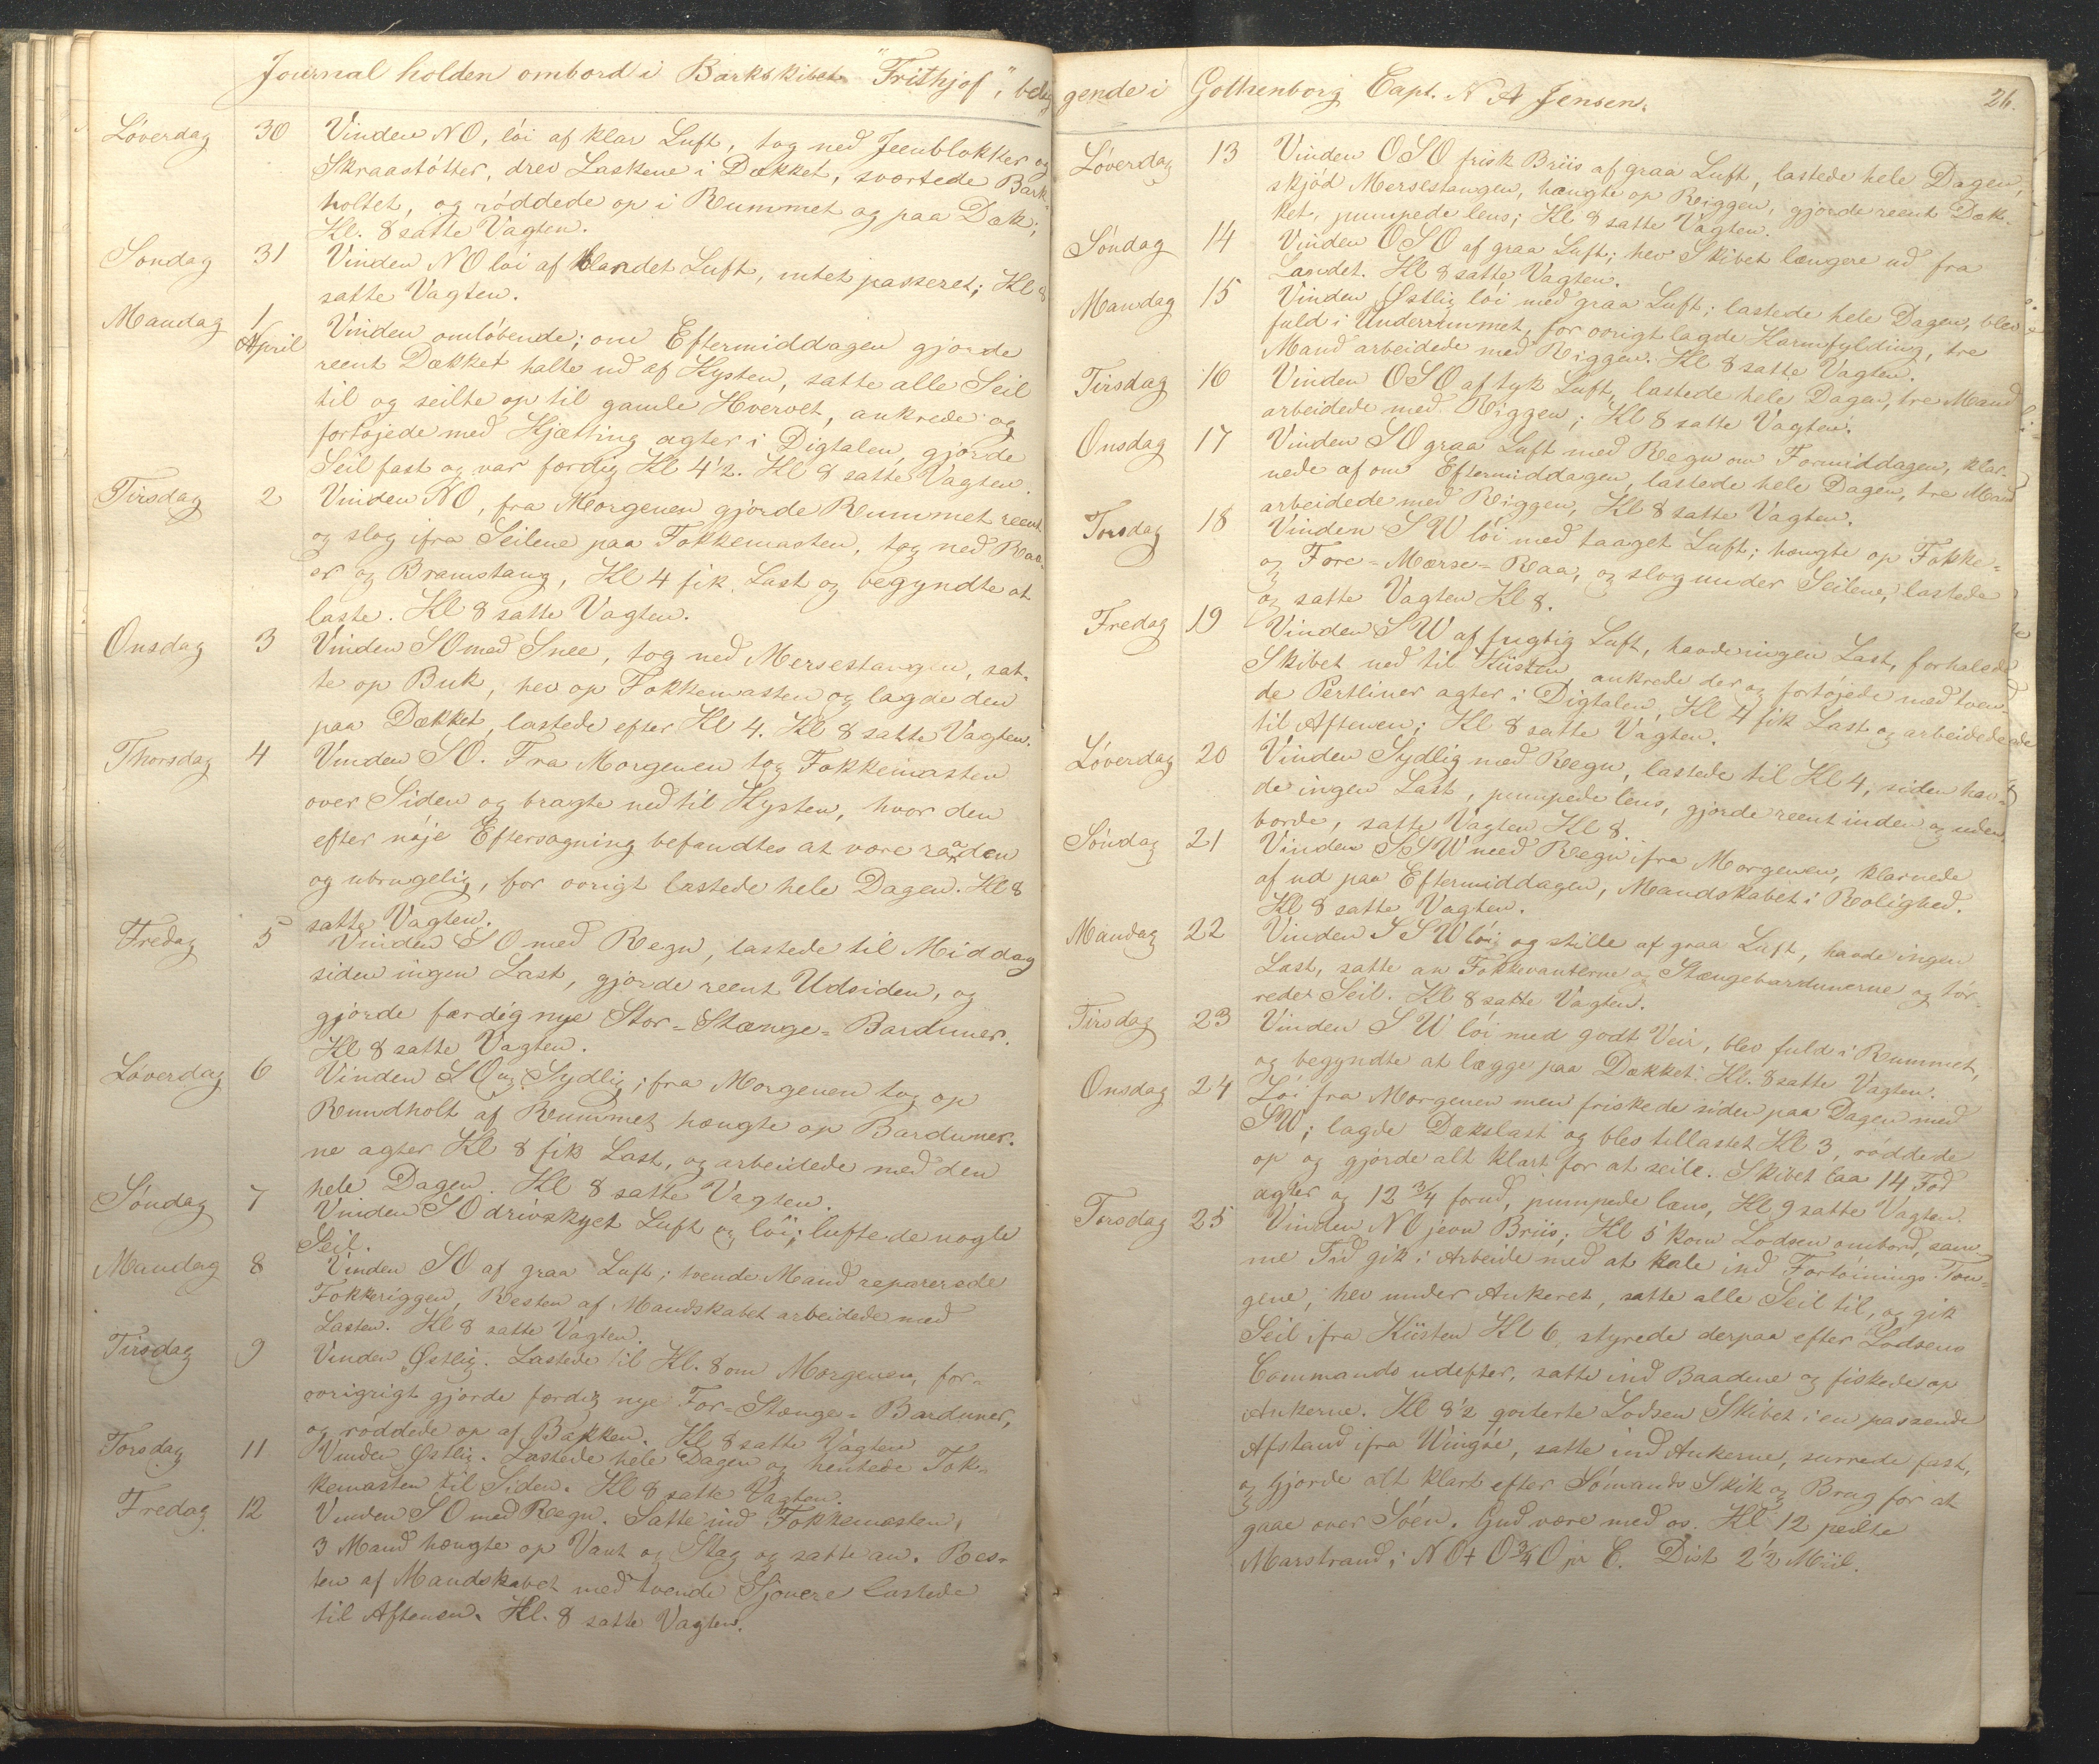 Journal holden ombord i Barkskibet "Frithjof", belig
Løverdag 30 Vinden NO, löi af klar Luft, tog ned Jeenblokker og
Skraastötter, drev Laskene i Dækket, svertede Bark-
holtet, og röddede op i Rummet og paa Dæk;
Kl. 8 satte Vagten.
Sondag 31 Vinden NO löi af blandet Luft, intet passeret; Kl 8
satte Vagten.
Mandag 1 April Vinden omlöbende; om Eftermiddagen gjorde
reent Dækket halte ud af Kysten, satte alle Seil
til og seilte op til gamle Hvervet, ankrede og
fortöjede med Kjætting agter i Digtalen, gjorde
Seil fast og var færdig Kl 4½. Kl 8 satte Vagten.
Tirsdag 2 Vinden NO, fra Morgenen gjorde Rummet reent
og slog ifra Seilene paa Fokkemasten, tog ned Raa-
er og Bramstang, Kl 4 fik Last og begyndte at
laste. Kl 8 satte Vagten.
Onsdag 3 Vinden SO med Snee, tog ned Mersestangen, sat-
te op Buk, hev op Fokkemasten og lagde den
paa Dækket, lastede efter Kl 4. Kl 8 satte Vagten.
Thorsdag 4 Vinden SO. Fra Morgenen tog Fokkemasten
over Siden og bragte ned til Kysten, hvor den
efter nöje Eftersøgning befandtes at være raaden
og ubrugelig, for øvrigt lastede hele Dagen. Kl 8
satte Vagten.
Fredag 5 Vinden SO med Regn, lastede til Middag
siden ingen Last, gjorde reent Udsiden, og
gjorde færdig nye Stor-Stænge-Barduner.
Kl 8 satte Vagten.
Løverdag 6 Vinden SO og Sydlig; fra Morgenen tog op
Rundholt af Rummet hængte op Barduner-
ne agter Kl 8 fik Last, og arbeidede med den
hele Dagen. Kl 8 satte Vagten.
Söndag 7 Vinden SO drivskyet Luft og löi; luftede nogle
Seil.
Mandag 8 Vinden SO af graa Luft; tvende Mand reparerede
Fokkeriggen, Resten af Mandskabet arbeidede med
Lasten. Kl 8 satte Vagten.
Tirsdag 9 Vinden Østlig. Lastede til Kl. 8 om Morgenen, for-
øvrigrigt gjorde færdig nye For-Stænge-Barduner,
og röddede op af Bakken. Kl 8 satte Vagten
Torsdag 11 Vinden Østlig. Lastede hele Dagen og hentede Fok-
kemasten til Siden. Kl 8 satte Vagten.
Fredag 12 Vinden SO med Regn. Satte ind Fokkemasten,
3 Mand hængte op Vant og Stag og satte an. Res-
ten af Mandskabet med tvende Sjouere lastede
til Aftenen. Kl. 8 satte Vagten.
gende i Gothenborg Capt. N A Jensen. 26.
Löverdag 13 Vinden OSO frisk Briis af graa Luft, lastede hele Dagen,
skjöd Mersestangen, hængte op Riggen, gjorde reent Dæk-
ket, pumpede lens; Kl. 8 satte Vagten.
Söndag 14 Vinden OSO af graa Luft; hev Skibet længere ud fra
Landet. Kl 8 satte Vagten.
Mandag 15 Vinden Østlig löi med graa Luft; lastede hele Dagen, blev
fuld i Underrummet, for øvrigt lagde Karmfylding, tre
Mand arbeidede med Riggen. Kl 8 satte Vagten.
Tirsdag 16 Vinden OSO af tyk Luft, lastede hele Dagen, tre Mand
arbeidede med Riggen; Kl 8 satte Vagten.
Onsdag 17 Vinden SO graa Luft med Regn om Formiddagen, klar-
nede af om Eftermiddagen, lastede hele Dagen, tre Mand
arbeidede med Riggen, Kl 8 satte Vagten.
Torsdag 18 Vinden SW löi med taaget Luft; hængte op Fokke-
og Fore-Mærse-Raa, og slog under Seilene, lastede
og satte Vagten Kl 8.
Fredag 19 Vinden SW af fugtig Luft, havde ingen Last, forhalede
Skibet ned til Küsten, ankrede der og fortöjede med tven-
de Pertliner agter i Digtalen, Kl 4 fik Last og arbeidede
til Aftenen; Kl 8 satte Vagten.
Löverdag 20 Vinden Sydlig med Regn, lastede til Kl 4, siden hav-
de ingen Last, pumpede lens, gjorde reent inden og uden
borde, satte Vagten Kl 8.
Söndag 21 Vinden SSW med Regn ifra Morgenen, klarnede
af ud paa Eftermiddagen, Mandskabet i Rolighed.
Kl 8 satte Vagten.
Mandag 22 Vinden SSW löi og stille af graa Luft, havde ingen
Last, satte an Fokkevanterne og Stængebardunerne og tör-
rede Seil. Kl 8 satte Vagten.
Tirsdag 23 Vinden SW löi med godt Veir, blev fuld i Rummet,
og begyndte at lægge paa Dækket. Kl. 8 satte Vagten.
Onsdag 24 Löi fra Morgenen men friskede siden paa Dagen med
SW; lagde Dækslast og blev tillastet Kl 3, röddede
op og gjorde alt klart for at seile. Skibet laa 14 Fod
agter og 12 ¾ forud, pumpede læns, Kl 9 satte Vagten.
Torsdag 25 Vinden NO jevn Briis; Kl 5 kom Lodsen ombord, sam-
me Tid gik i Arbeide med at hale ind Fortöinings-Tou-
gene, hev under Ankeret, satte alle Seil til, og gik
Seil ifra Küsten Kl 6, styrede derpaa efter Lodsens
Commando udefter, satte ind Baadene og fiskede op
Ankerne. Kl 8½ qviterte Lodsen Skibet i en passende
Afstand ifra Wingöe, satte ind Ankerne, surrede fast,
og gjorde alt klart efter Sömands Skik og Brug for at
gaae over Söen. Gud være med os. Kl 12 peilte
Marstrand i NO t O ¾ O pr C. Dist 2½ Miil.